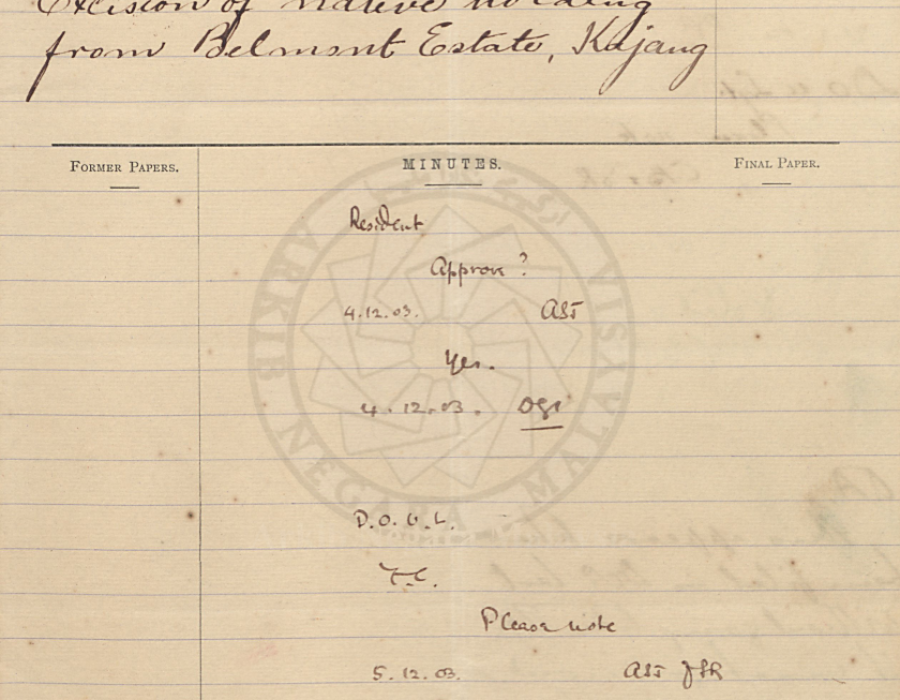 Excision of native holding
from Belmont Estate, Kajang
FORMER PAPERS.
MINUTES.
FINAL PAPER.
Resident
Approve?
4.12.03. AST
Yes.
4.12.03.
D.O.U.L.
Please note
5.12.03. AST
ARKIB NEGARA MALAYSIA